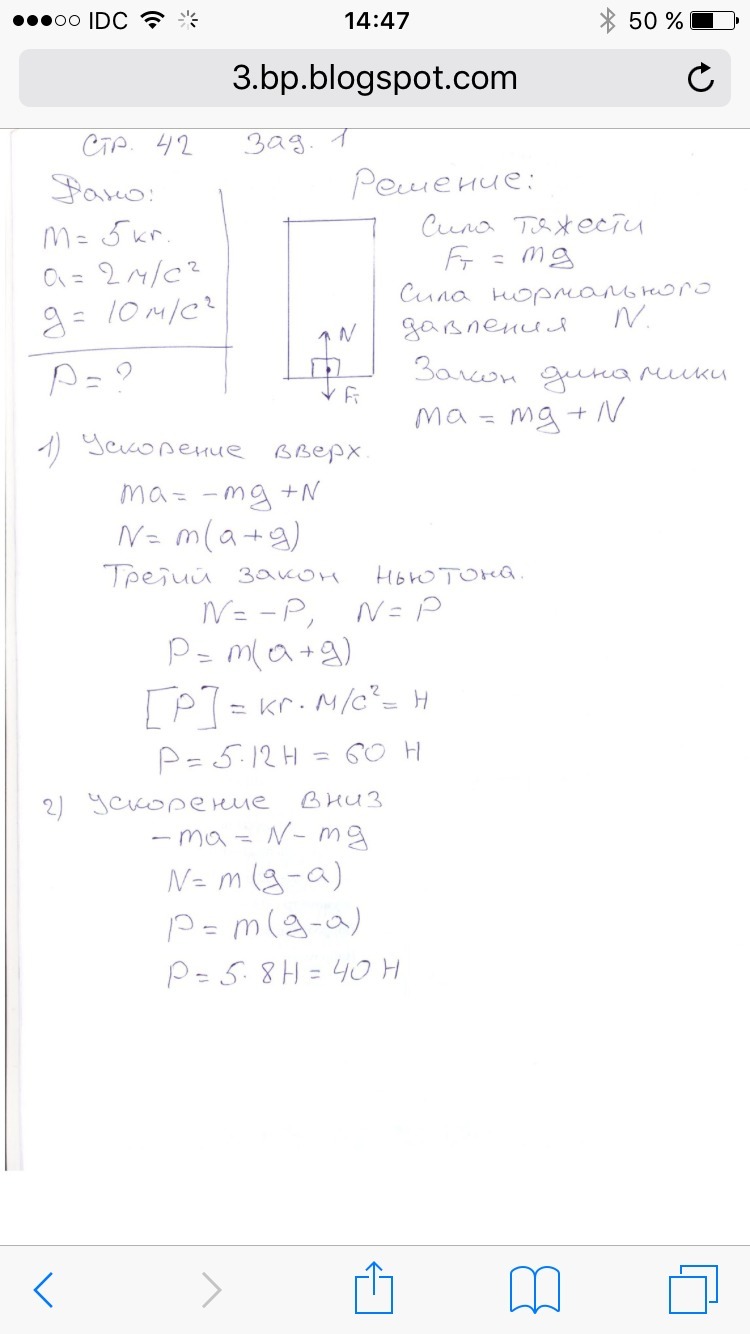 IDC 14:47 50 %
3.bp.blogspot.com
Стр. 42 Зад. 1
Дано:
m = 5 кг.
a = 2 м/с²
g = 10 м/с²
P = ?
Решение:
N
Fт
Сила тяжести
Fт = mg
Сила нормального
давления N.
Закон динамики
ma = mg + N
1) Ускорение вверх.
ma = -mg + N
N = m(a+g)
Третий закон Ньютона.
N = -P, N = P
P = m(a+g)
[P] = кг · м/с² = Н
P = 5·12Н = 60 Н
2) Ускорение вниз
-ma = N - mg
N = m(g-a)
P = m(g-a)
P = 5·8Н = 40Н